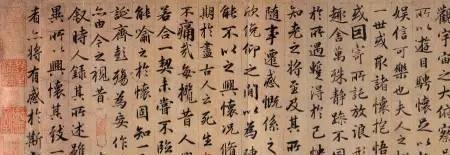 觀宇宙之大俯察品
所以遊目騁懷足以
娛信可樂也夫人之
一世或取諸懷抱悟
或因寄所託放浪形
趣舍萬殊靜躁不同
於所遇蹔得於己怏
知老之將至及其所
隨事遷感慨係之
欣俛仰之閒以為陳
能不以之興懷況脩
期於盡古人云死生
不痛哉每攬昔人
若合一契未嘗不
能喻之於懷固知一
誕齊彭殤為妄作
亦由今之視昔
敘時人錄其所述雖
異所以興懷其致一
者亦將有感於斯